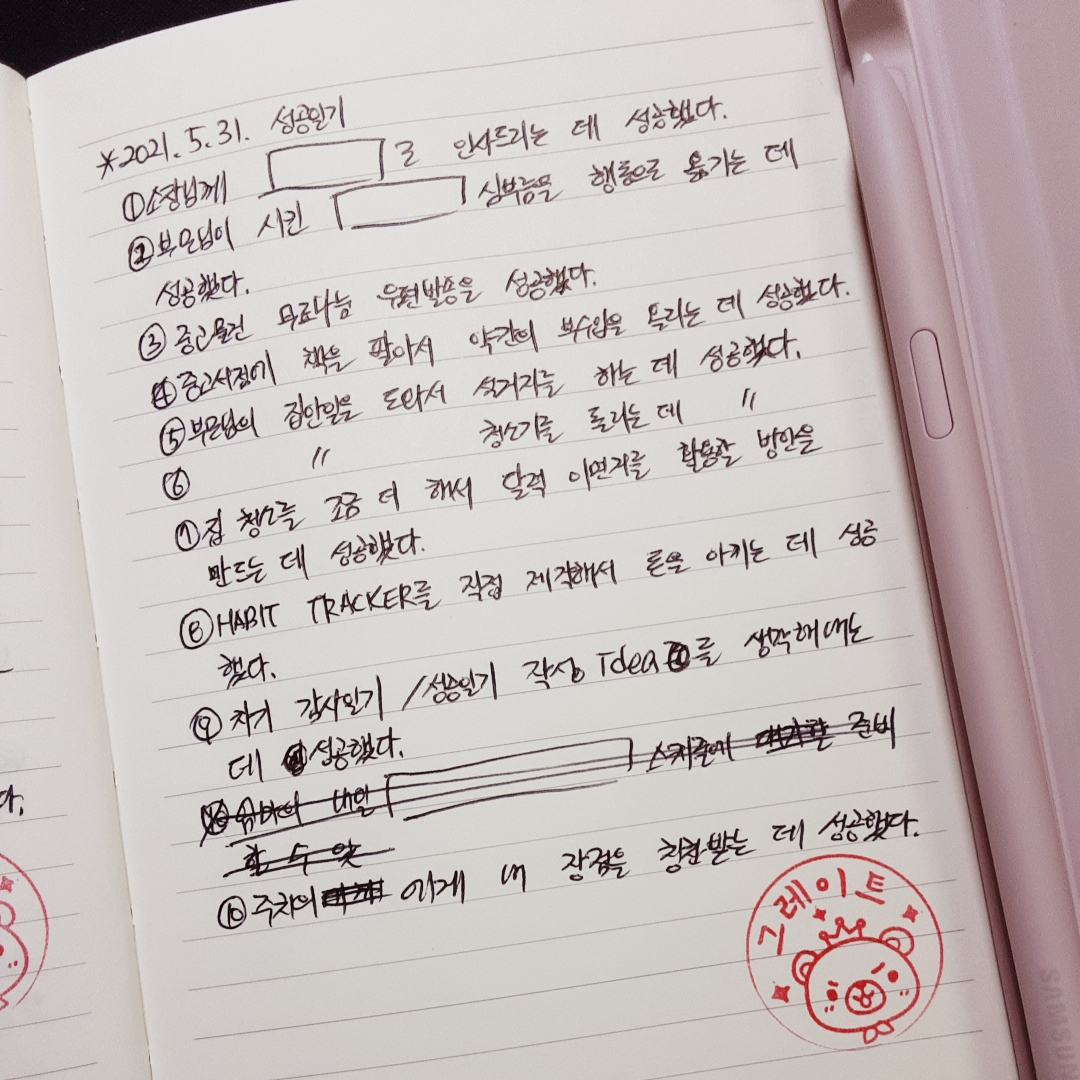 *2021.5.31. 성공일기
①소장님께 로 인사드리는 데 성공했다.
②부모님이 시킨 심부름을 행동으로 옮기는 데
성공했다.
③ 중고물건 무료나눔 우편발송을 성공했다.
④ 중고서점에 책을 팔아서 약간의 보수입을 늘리는 데 성공했다.
⑤부모님의 집안일을 도와서 설거지를 하는 데 성공했다.
⑥ 〃 청소기를 돌리는 데 〃
⑦집 청소를 조금 더 해서 달력 이면지를 활용할 방안을
만드는 데 성공했다.
⑧HABIT TRACKER를 직접 제작해서 돈을 아끼는 데 성공
했다.
⑨ 차기 감사일기/성공일기 작성 Idea를 생각해내는
데 성공했다.
내일 스케줄에 준비
할 수 있
⑩ 에게 내 장점을 칭찬받는 데 성공했다.
그레이트
SAMSU